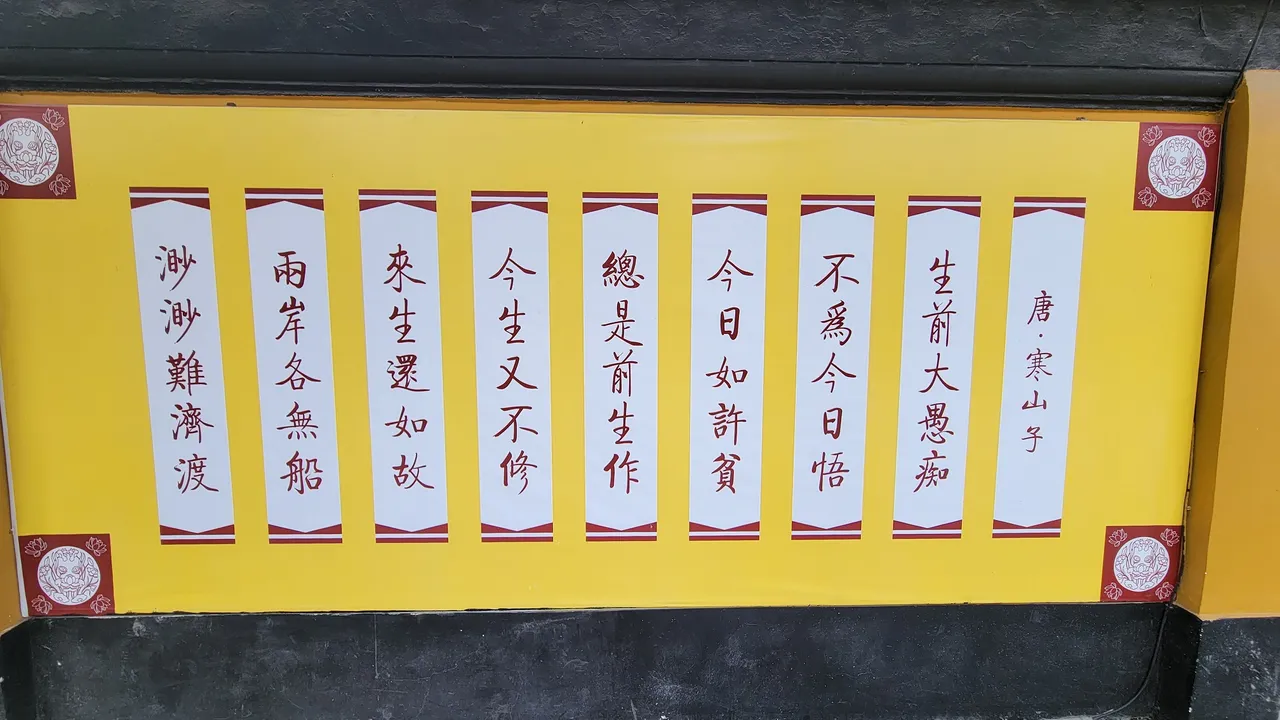 唐·寒山子
生前大愚痴
不爲今日悟
今日如許貧
總是前生作
今生又不修
來生還如故
兩岸各無船
渺渺難濟渡